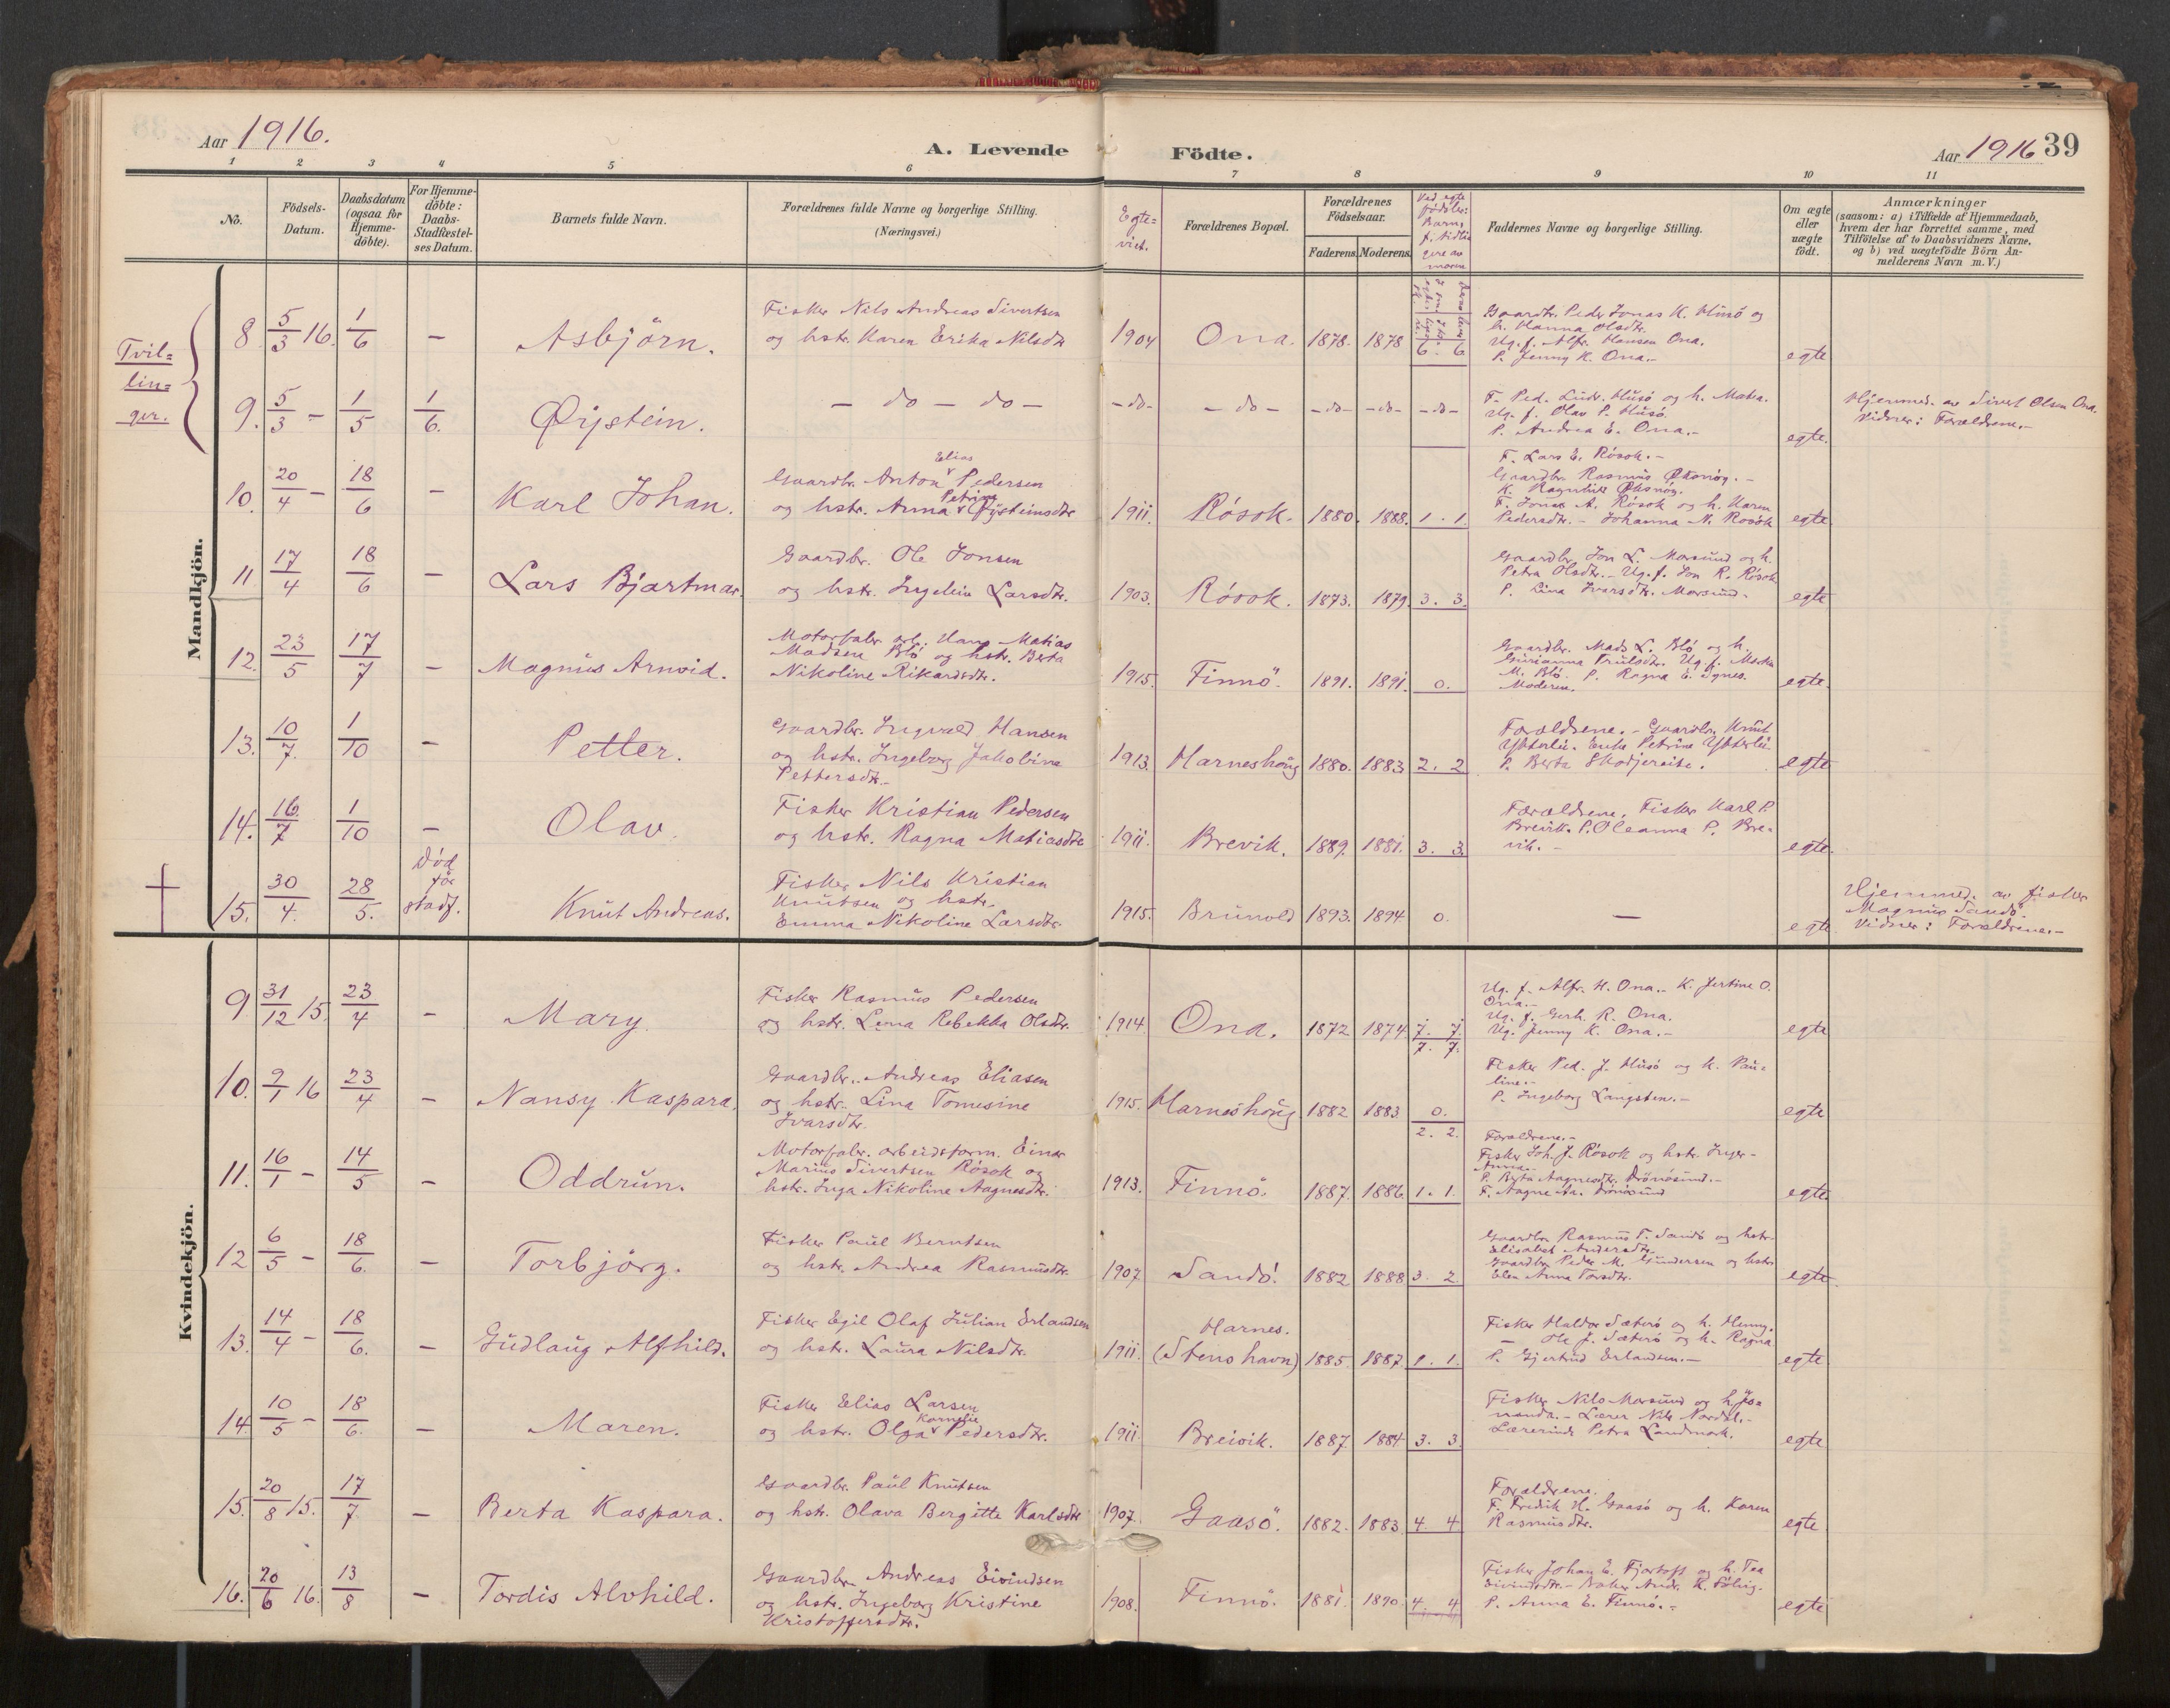 Aar 1916.
A. Levende
Födte.
Aar 1916 39
1 2 3 4 5 6 7 8 9 10 11
No.
Födsels-
Datum.
Daabsdatum
(ogsaa for
Hjemme-
döbte).
For Hjemme-
döbte:
Daabs-
Stadfæstel-
ses Datum.
Barnets fulde Navn.
Forældrenes fulde Navne og borgerlige Stilling.
(Næringsvei.)
Egte-
viet.
Forældrenes Bopæl.
Forældrenes
Födselsaar.
Faderens. Moderens.
Ved egte
födsler:
Barn,
f. tidli-
gere av
moren
Faddernes Navne og borgerlige Stilling.
Om ægte
eller
uægte
födt.
Anmærkninger
(saasom: a) i Tilfælde af Hjemmedaab,
hvem der har forrettet samme, med
Tilföielse af to Daabsvidners Navne,
og b) ved uægtefödte Börn An-
melderens Navn m. V.)
Tvil-
lin-
ger.
Mandkjön.
8 5/3 16. 1/6 – Asbjörn.
Fisker Nils Andreas Sivertsen
og hstr. Karen Erika Nilsdtr
1904 Ona. 1878. 1878 6. 6.
Gaardbr. Peder Jonas K. Husö og
h. Hanna Olsdtr.
Ug. f. Alfr. Hansen Ona.
P. Jenny K. Ona.–
egte
9. 5/3 – 1/5 1/6. Øistein.
– do – do –
–do– – do – –do– –do– –do–
F. Ped. Ludv. Husö og h.
Ug. f. Olav P. Husö.
P. Andrea E. Ona.–
egte.
Hjemmed. av Sivert Olsen Ona.
Vidner: Forældrene.–
10. 20/4 – 18/6 – Karl Johan.
Elias
Gaardbr. Anton Pedersen
Petrine
og hstr. Anna Øysteinsdtr
1911. Rösok. 1880. 1888. 1. 1.
F. Lars E. Rösok.–
Gaardbr. Rasmus
K. Ragnhild
F. Jonas A. Rösok og h. Karen
Pedersdtr. – Johanna N. Rosok
egte
11 17/4 18/6 – Lars Bjartmar.
Gaardbr. Ole Jonsen
og hstr. Ingelein Larsdtr.
1903. Rösok. 1873. 1879. 3. 3.
Gaardbr. Jon L. Morsund og h.
Petra Olsdtr. – Ug. f. Jon R. Rösok
P. Lina Ivarsdtr. Morsund.
egte
12. 23/5 17/7 – Magnus Arnvid.
Motorfabr. arb. Hans Matias
Madsen Blö og hstr. Berta
Nikoline Rikardsdtr.
1915. Finnö. 1891. 1891. 0.
Gaardbr. Mads L. Blö og h.
Gurianna Trulsdtr. Ug. f.
M. Blö. P. Ragna E.
Moderen.
egte.
13. 10/7. 1/10 – Petter.
Gaardbr. Ingvald Hansen
og hstr. Ingeborg Jakobine
Pettersdtr.
1913. Harneshoug 1880. 1883 2. 2
Forældrene. – Gaardbr. Knut
Ytterlie. Enke Petrine Ytterlie
P. Berta Skodjereite.
egte
14. 16./7 1/10 – Olav.
Fisker Kristian Pedersen
og hstr. Ragna Matiasdtr
1911. Brevik. 1889. 1881. 3. 3.
Forældrene. Fisker Karl P.
Brevik. P. Oleanna P. Bre-
vik. –
egte.
15. 30/4. 28/5. Död
för
stadf.
Knut Andreas.
Fisker Nils Kristian
Knutsen og hstr.
Emma Nikoline Larsdtr.
1915. Brunvold 1893. 1894 0. –
egte
Hjemmed. av fisker
Magnus Sandö.
Vidner: Forældrene.–
Kvindekjön.
9 31/12 15. 23/4 – Mary
Fisker Rasmus Pedersen
og hstr. Lena Rebekka Olsdtr.
1914 Ona. 1872 1874. 7. 7.
7. 7.
Ug. f. Alfr. H. Ona.– K. Jertine O.
Ona.–
Ug. f. Gerh. R. Ona.
Ug. Jenny K. Ona.–
egte
10. 9/1 16 23/4 – Nansy Kaspara.
Gaardbr. Andreas Eliasen
og hstr. Lina Tomesine
Ivarsdtr.
1915. Harneshoug 1882 1883 0.
2. 2.
Fisker Ped. J. Husö og h. Pau-
line.–
P. Ingeborg Langsten.–
egte
11. 16/1 – 14/5 – Oddrun.
Motorfabr. arbeidsform. Einar
Marius Sivertsen Rösok og
hstr. Inga Nikoline Aagnesdtr.
1913. Finnö. 1887. 1886. 1. 1.
Forældrene.–
Fisker Joh. J. Rösok og hstr. Inger-
Anna.–
P. Berta Aagnesdtr. Drönösund.–
F. Aagne Aa. Drönösund
egte
12 6/5 – 18/6. – Torbjörg.
Fisker Paul Berntsen
og hstr. Andrea Rasmusdtr.
1907 Sandö. 1882 1888 3. 2.
Gaardbr. Rasmus T. Sandö og hstr.
Elisabet Andersdtr.
Gaardbr. Peder M. Gundersen og hstr
Elen Anna Torsdtr.
egte
13. 14/4 – 18/6. – Gudlaug Alfhild.
Fisker Egil Olaf Julian Erlandsen
og hstr. Laura Nilsdtr.
1911. Harnes.
(Stenshavn) 1885. 1887 1. 1.
Fisker Haldor Sæterö og h. Henny.
– Ole J. Sæterö og h. Ragna
P. Gjertrud Erlandsen.–
egte
14. 10/5 – 18/6. – Maren.
Fisker Elias Larsen
Kornelie
og hstr. Olga Pedersdtr.
1911. Breivik. 1887. 1884. 3. 3.
Fisker Nils Morsund og h.
– Lærer Nils Nordal.–
Lærerinde Petra Landmark.
egte
15. 20/8 15. 17/7 – Berta Kaspara.
Gaardbr. Paul Knutsen
og hstr. Olava Bergitte Karlsdtr
1907. Gaasö. 1882. 1883. 4. 4
Forældrene.
F. Fredik H. Gaasö og h. Karen
Rasmusdtr.
egte
16. 20/6 16. 13/8 – Tordis Alvhild.
Gaardbr. Andreas Eivindsen
og hstr. Ingeborg Kristine
Kristoffersdtr.
1908. Finnö. 1881. 1890. 4. 4
Fisker Johan E. Fjørtoft og h. Tea
Eivindsdtr. – Andr. R.
P. Anna E. Finnö.–
egte